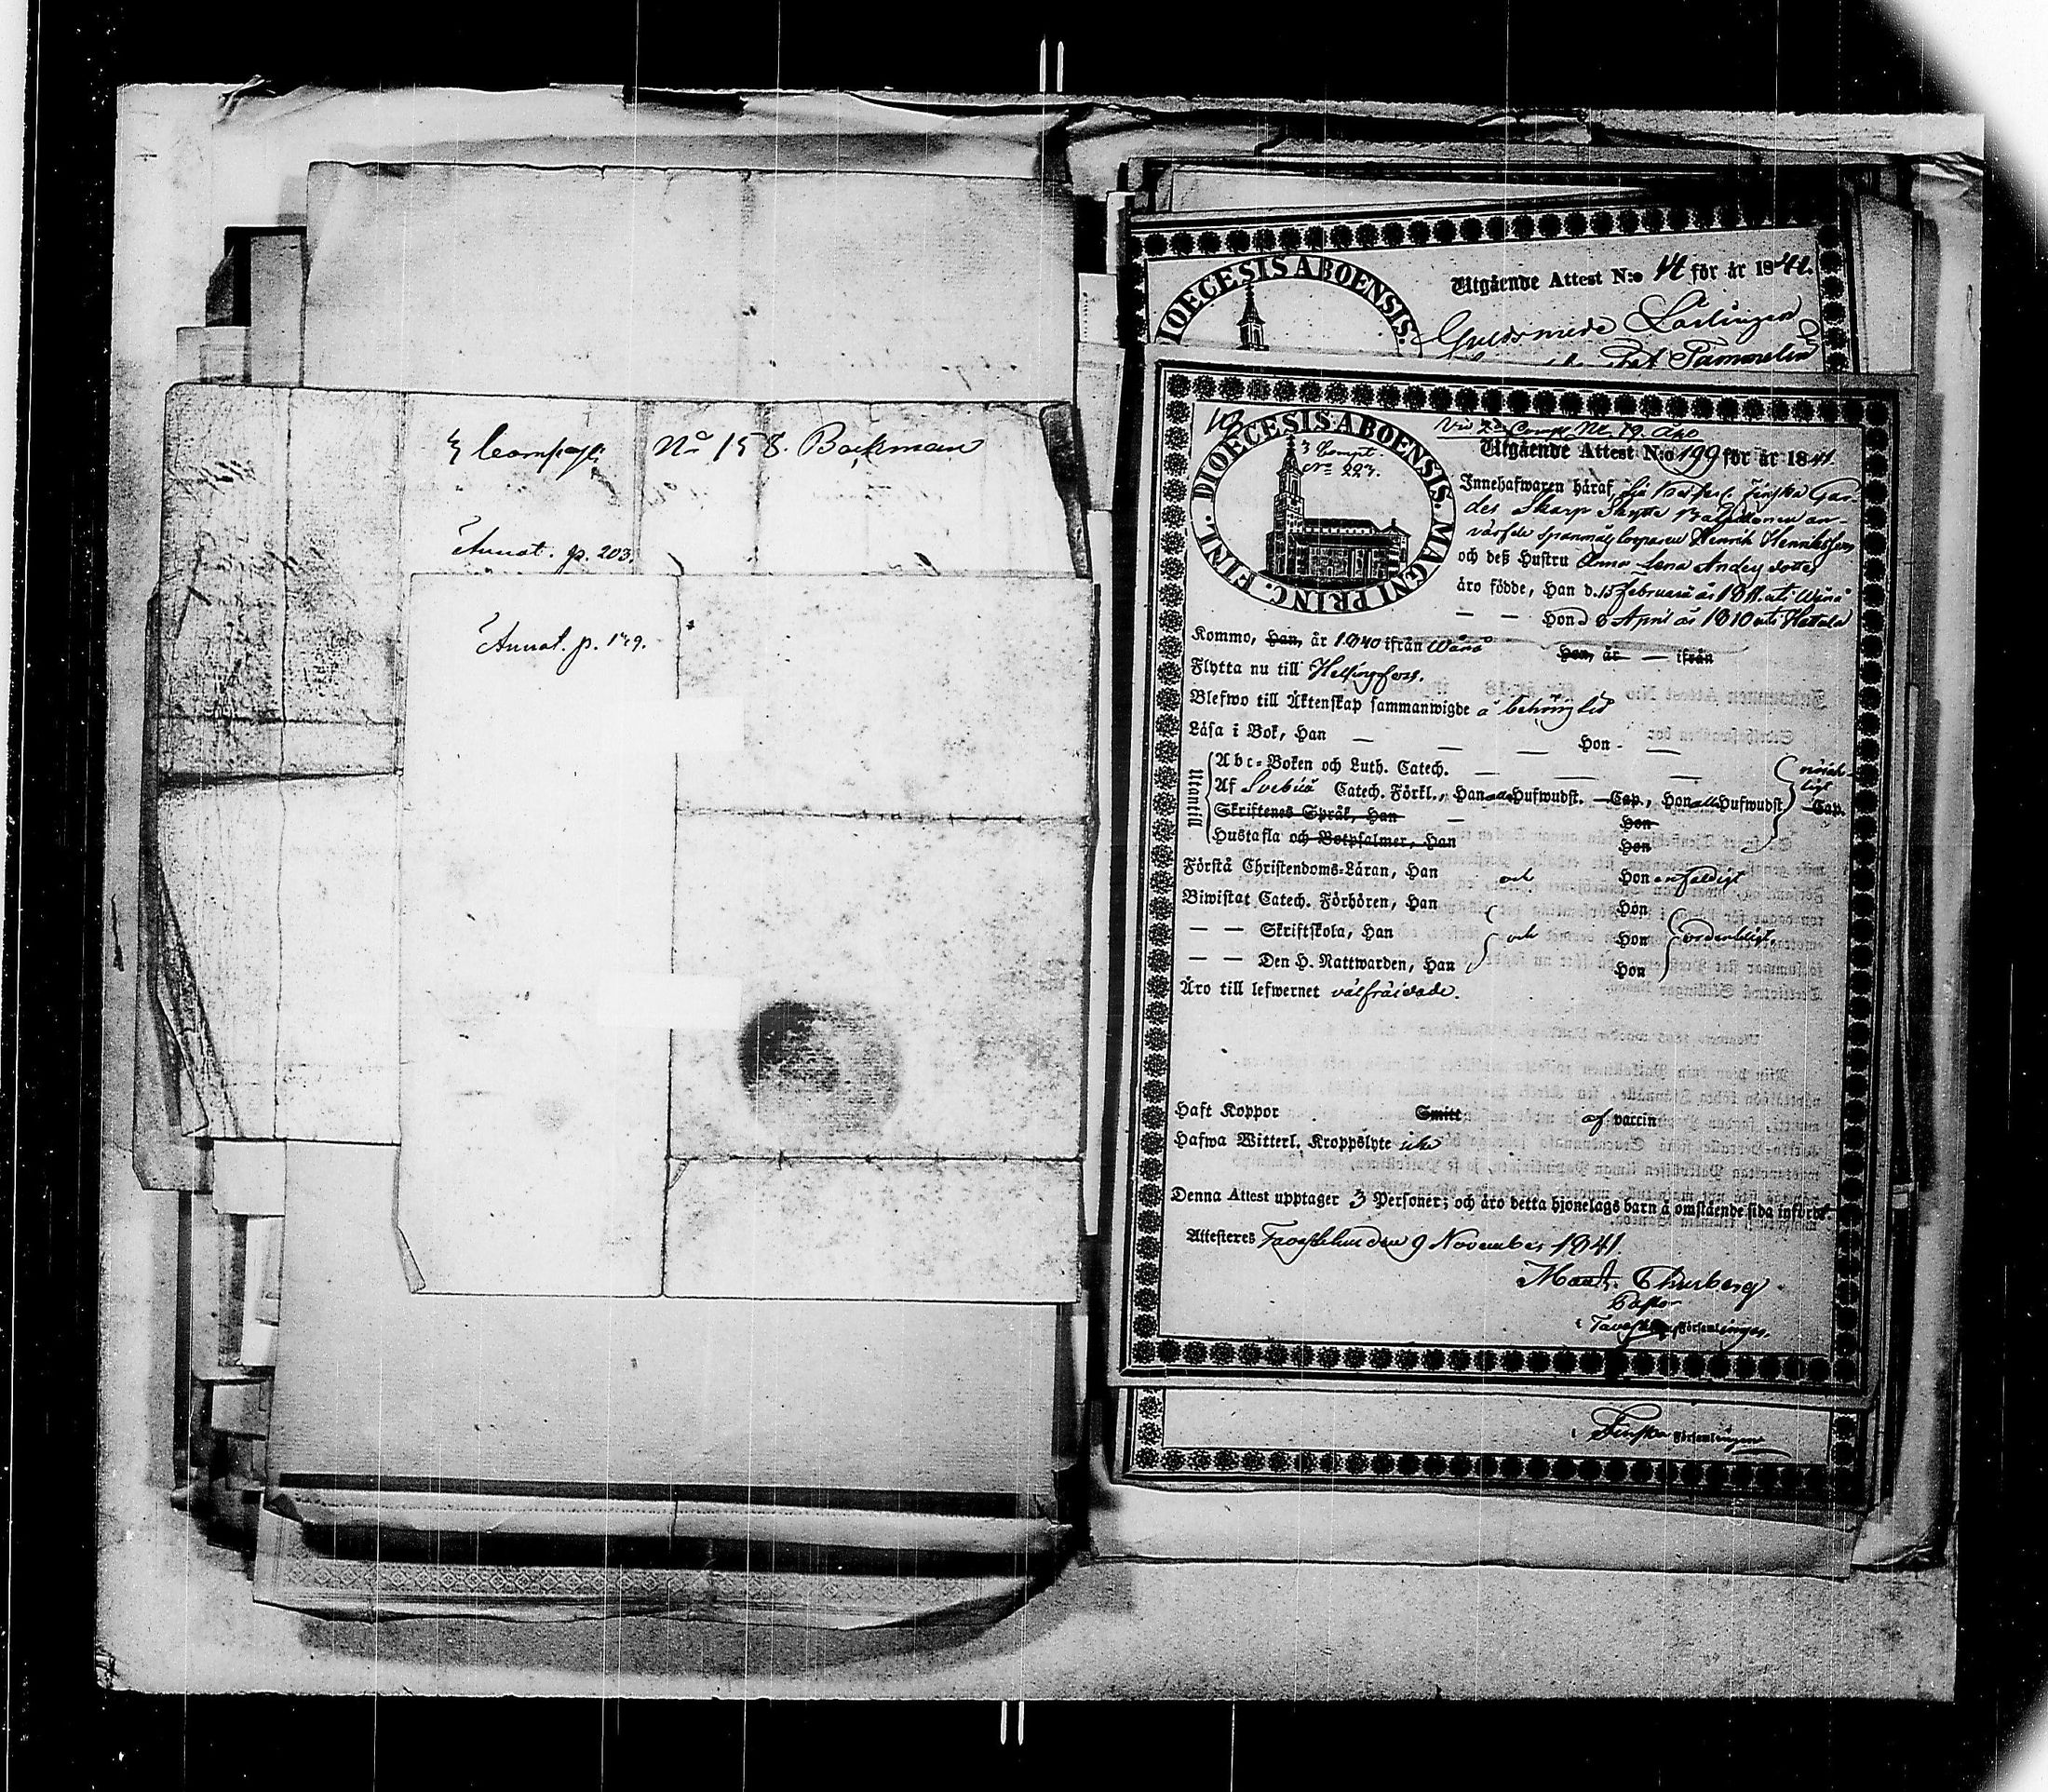 Compagn: No 158. Backman
Annot. p. 203.
Annot. p. 179.
DIOECESIS ABOENSIS.
Utgående Attest N:o 14 för år 1841.
Guldsmeds Lärlingen
Tammelin
DIOECESIS ABOENSIS. MAGNI PRINC. FINL.
3 Compt.
No 223.
Utgående Attest N:o 199 för år 1841.
Innehafwaren häraf, Finska Gar-
des Skarp Skytte Bataillonen an-
Henrik Henriksson
och deß Hustru Anna Lena Andersdotter
äro födde, Han d. 15 Februari år 1811 uti Wånå
— — Hon d 8 April år 1810 uti Hattula
Kommo, Han, år 1840 ifrån Wånå Hon, år — ifrån
Flytta nu till Helsingfors.
Blefwo till Äktenskap sammanwigde å behörig tid
Läsa i Bok, Han — — — Hon — —
Utantill
Abc-Boken och Luth. Catech. — — —
Af Svebilii Catech. Förkl., Han alla Hufwudst. — Cap., Hon alla Hufwudst — Cap.
Skriftenes Språk, Han — Hon
Hustafla och Botpsalmer, Han Hon
Förstå Christendoms-Läran, Han och Hon enfaldigt
Biwistat Catech. Förhören, Han Hon
— — Skriftskola, Han och Hon ordentligt.
— — Den H. Nattwarden, Han Hon
Äro till lefwernet välfräjdade.
Haft Koppor Smitt af vaccin
Hafwa Witterl. Kroppslyte icke
Denna Attest upptager 3 Personer; och äro detta hjonelags barn å omstående sida införde.
Attesteres Tavastehus den 9 November 1841.
Thurberg
Pastor
i Tavastehus Församlingar.
i Finska Församlingen